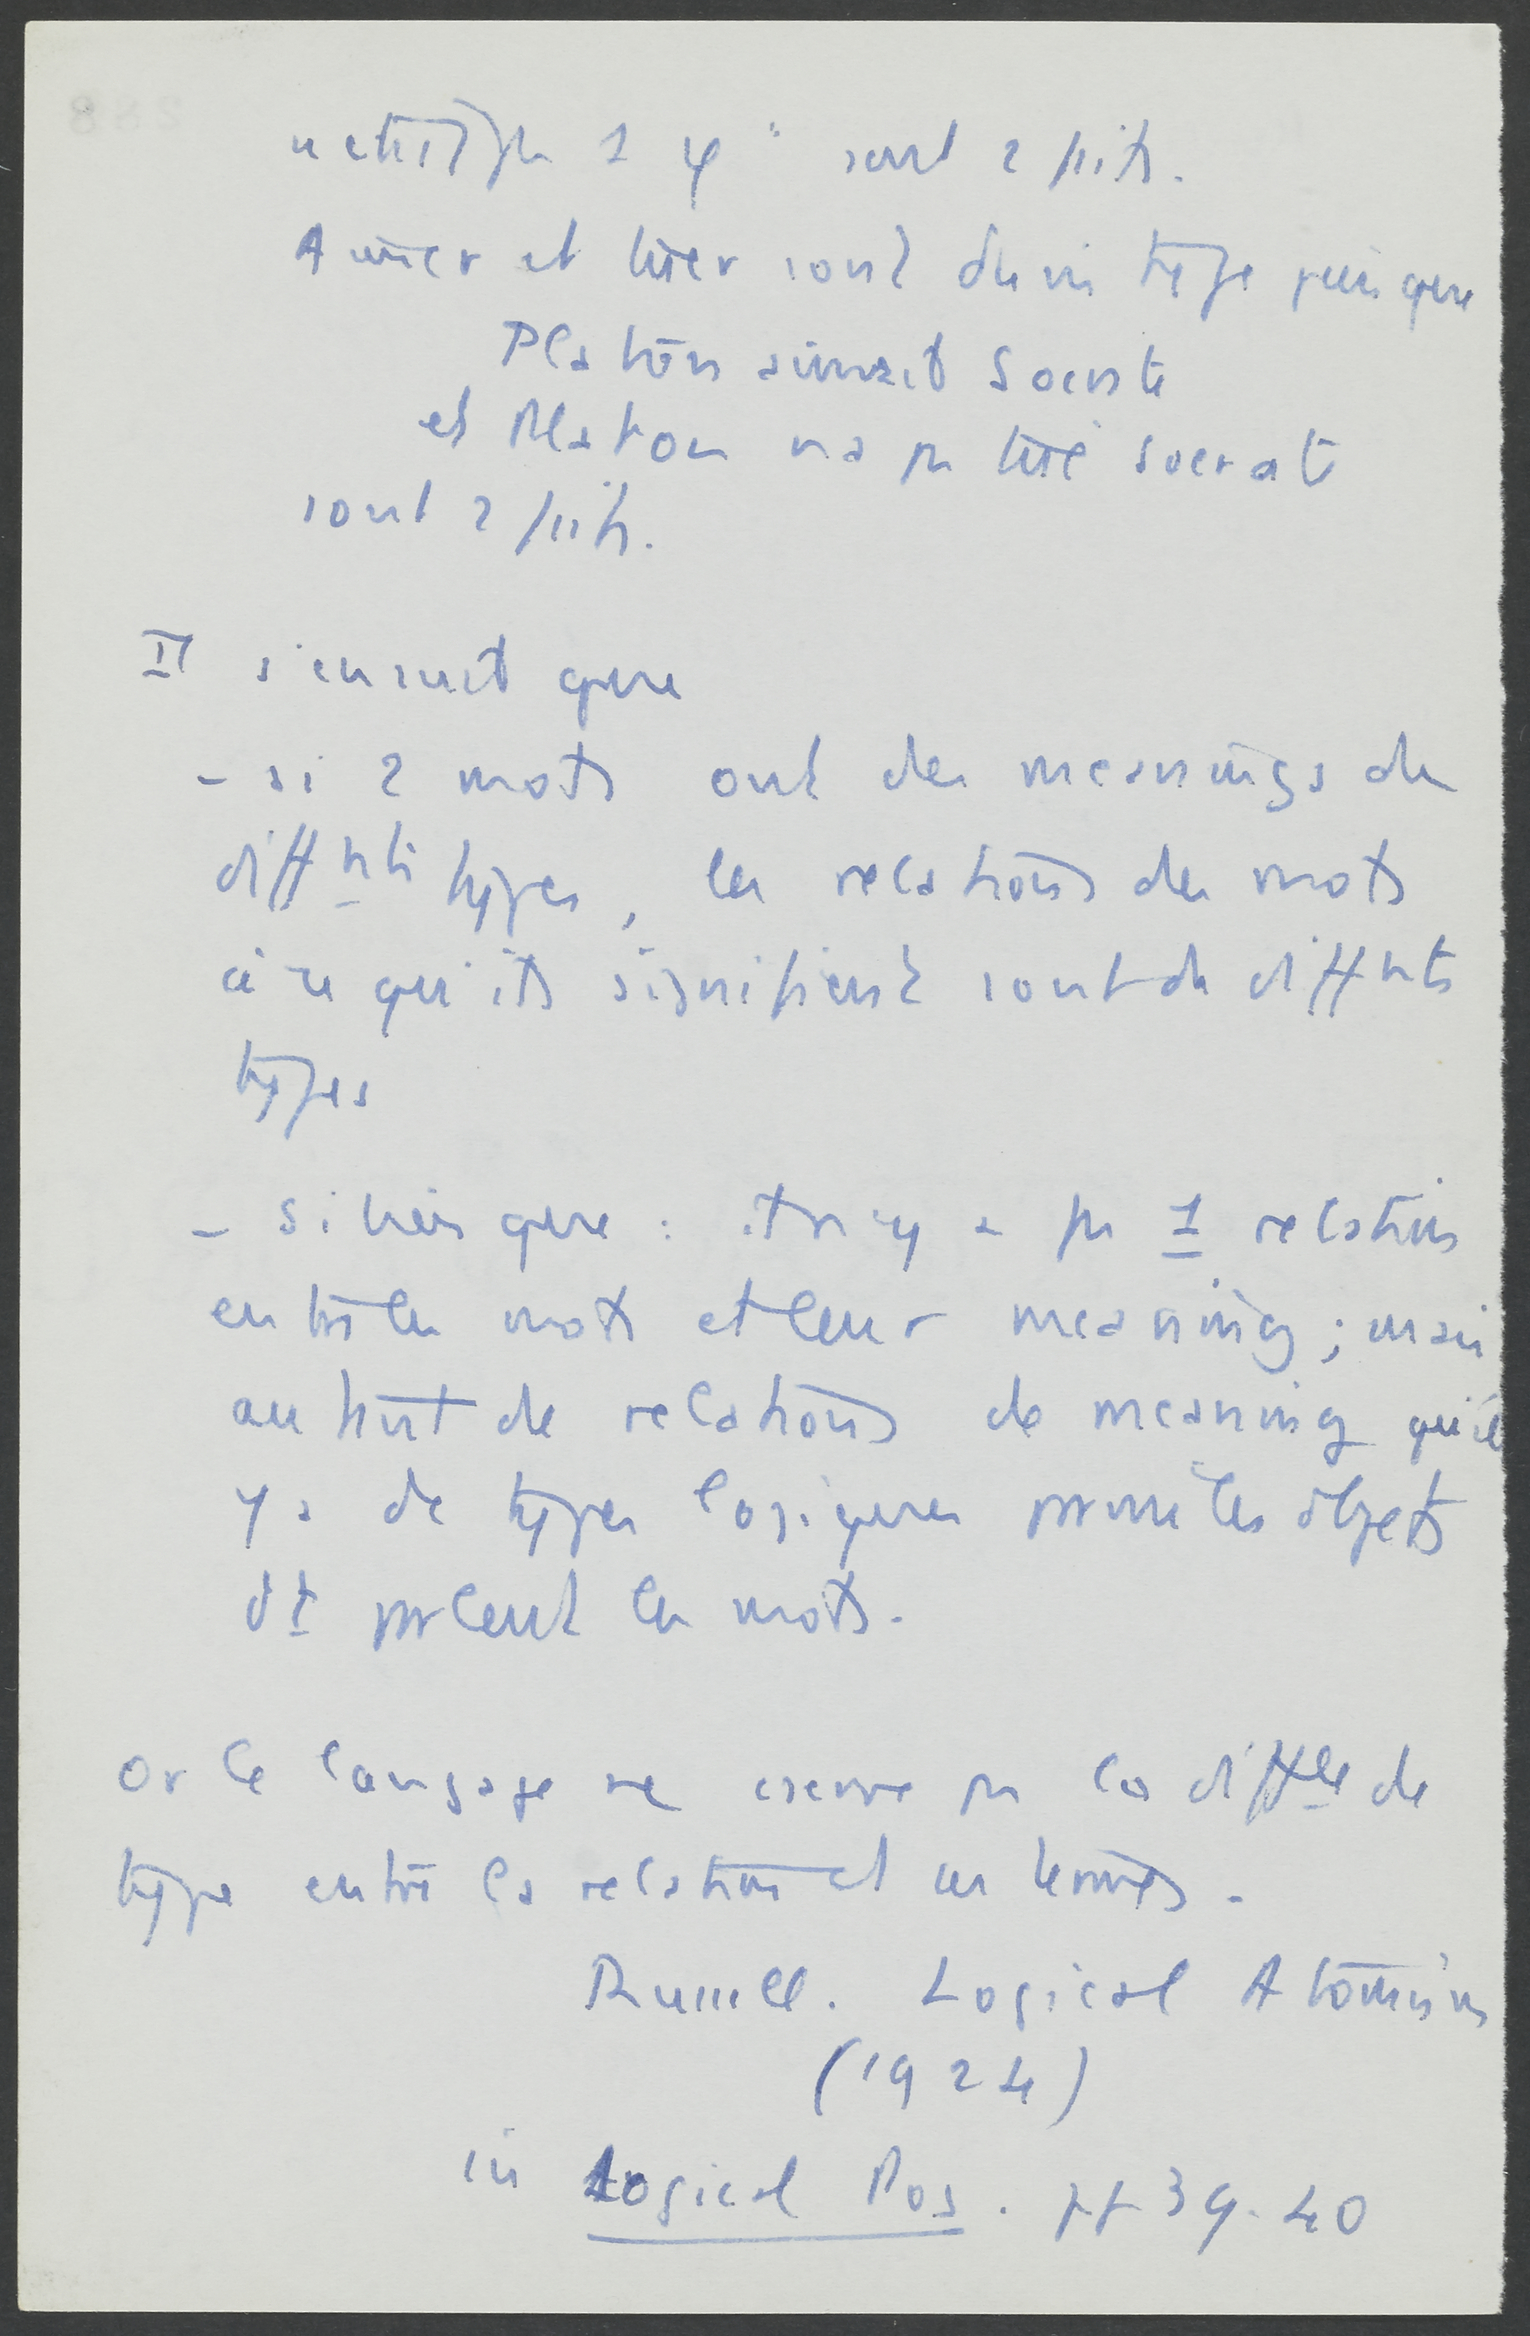 n'était pas 1 φ" sont 2 faits.
Aimer et tuer sont du m type puisque
Platon aimait Socrate
et Platon n'a pas tué Socrate
sont 2 faits.
Il s'ensuit que
- si 2 mots ont des meanings de
diffnts types, les relations des mots
à ce qu'ils signifient sont de diffnts
types
- si bien que : il n'y a pas 1 relation
entre les mots et leur meaning ; mais
autant de relations de meaning qu'il
y a de types logiques parmi les objets
dt parlent les mots.
Or le langage ne conserve pas la diffce de
type entre la relation et ses termes.
Russell. Logical Atomism
(1924)
in Logical Pos. pp 39-40